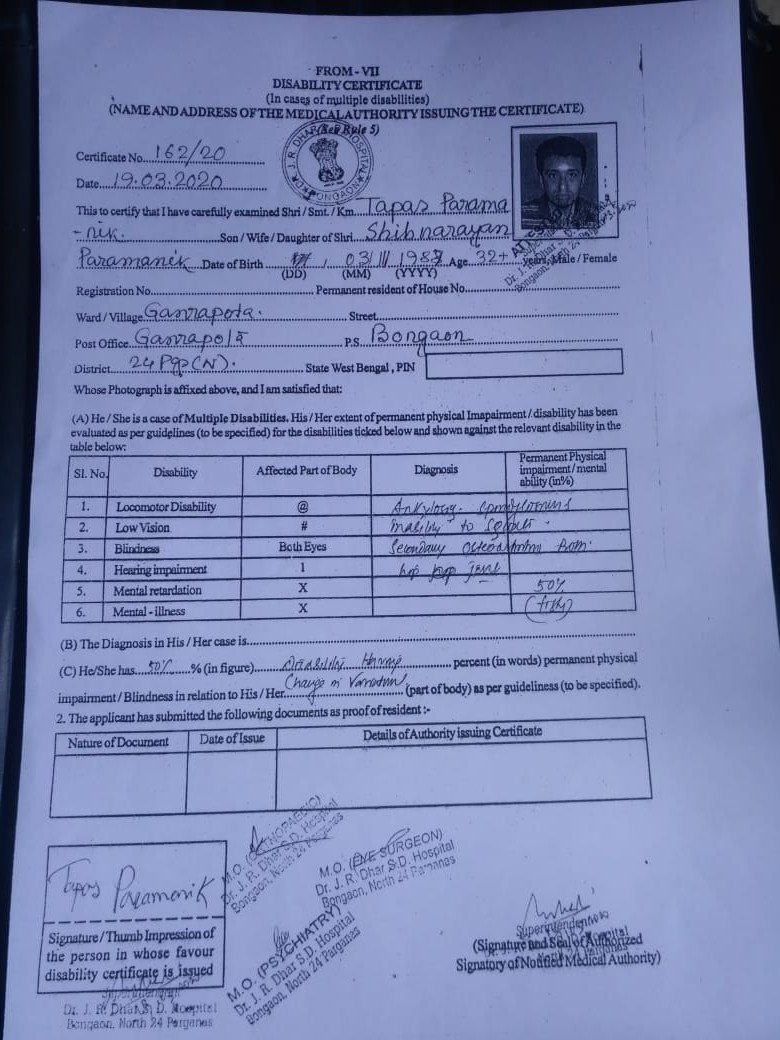 FROM - VII
DISABILITY CERTIFICATE
(In cases of multiple disabilities)
(NAME AND ADDRESS OF THE MEDICAL AUTHORITY ISSUING THE CERTIFICATE)
(See Rule 5)
Certificate No....162/20
Date....19.03.2020
This to certify that I have carefully examined Shri / Smt. / Km....Tapas Parama
- nik. Son / Wife / Daughter of Shri....Shibnarayan
Paramanik Date of Birth 03/ 1987 Age 32+ years, Male / Female
(DD) (MM) (YYYY)
Registration No. Permanent resident of House No.
Ward / Village Ganrapota. Street
Post Office Ganrapota P.S. Bongaon
District 24 Pgs (N). State West Bengal, PIN
Whose Photograph is affixed above, and I am satisfied that:
(A) He / She is a case of Multiple Disabilities. His / Her extent of permanent physical Imapairment / disability has been
evaluated as per guidelines (to be specified) for the disabilities ticked below and shown against the relevant disability in the
table below:
Sl. No. Disability Affected Part of Body Diagnosis Permanent Physical impairment / mental ability (in%)
1. Locomotor Disability @
2. Low Vision # to
3. Blindness Both Eyes Secondary Both
4. Hearing impairment 1 hip joint
5. Mental retardation X 50%
6. Mental - illness X
(B) The Diagnosis in His / Her case is
(C) He/She has 50% % (in figure) Disability percent (in words) permanent physical
impairment / Blindness in relation to His / Her (part of body) as per guideliness (to be specified).
2. The applicant has submitted the following documents as proof of resident :-
Nature of Document Date of Issue Details of Authority issuing Certificate
M.O. (ORTHOPAEDIC)
Dr. J. R. Dhar S.D. Hospital
Bongaon, North 24 Parganas
M.O. (EYE SURGEON)
Dr. J. R. Dhar S.D. Hospital
Bongaon, North 24 Parganas
M.O. (PSYCHIATRY)
Dr. J. R. Dhar S.D. Hospital
Bongaon, North 24 Parganas
Tapas Paramanik
Signature / Thumb Impression of
the person in whose favour
disability certificate is issued
Superintendent
Dr. J. R. Dhar S. D. Hospital
Bongaon, North 24 Parganas
Superintendent
(Signature and Seal of Authorized
Signatory of Notified Medical Authority)